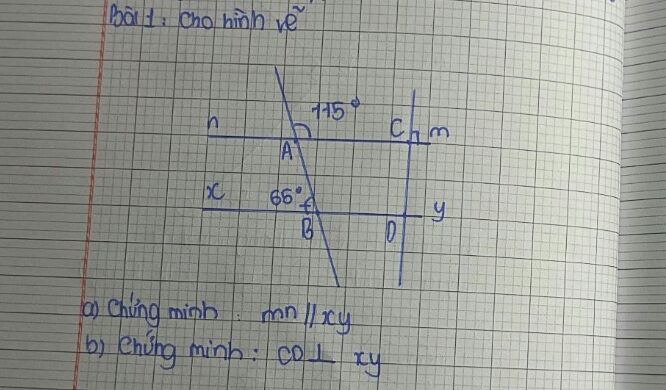 Bài 1: Cho hình vẽ
115°
n
C
m
A
x
65°
y
B
D
a) Chứng minh: mn // xy
b) Chứng minh: CD ⊥ xy